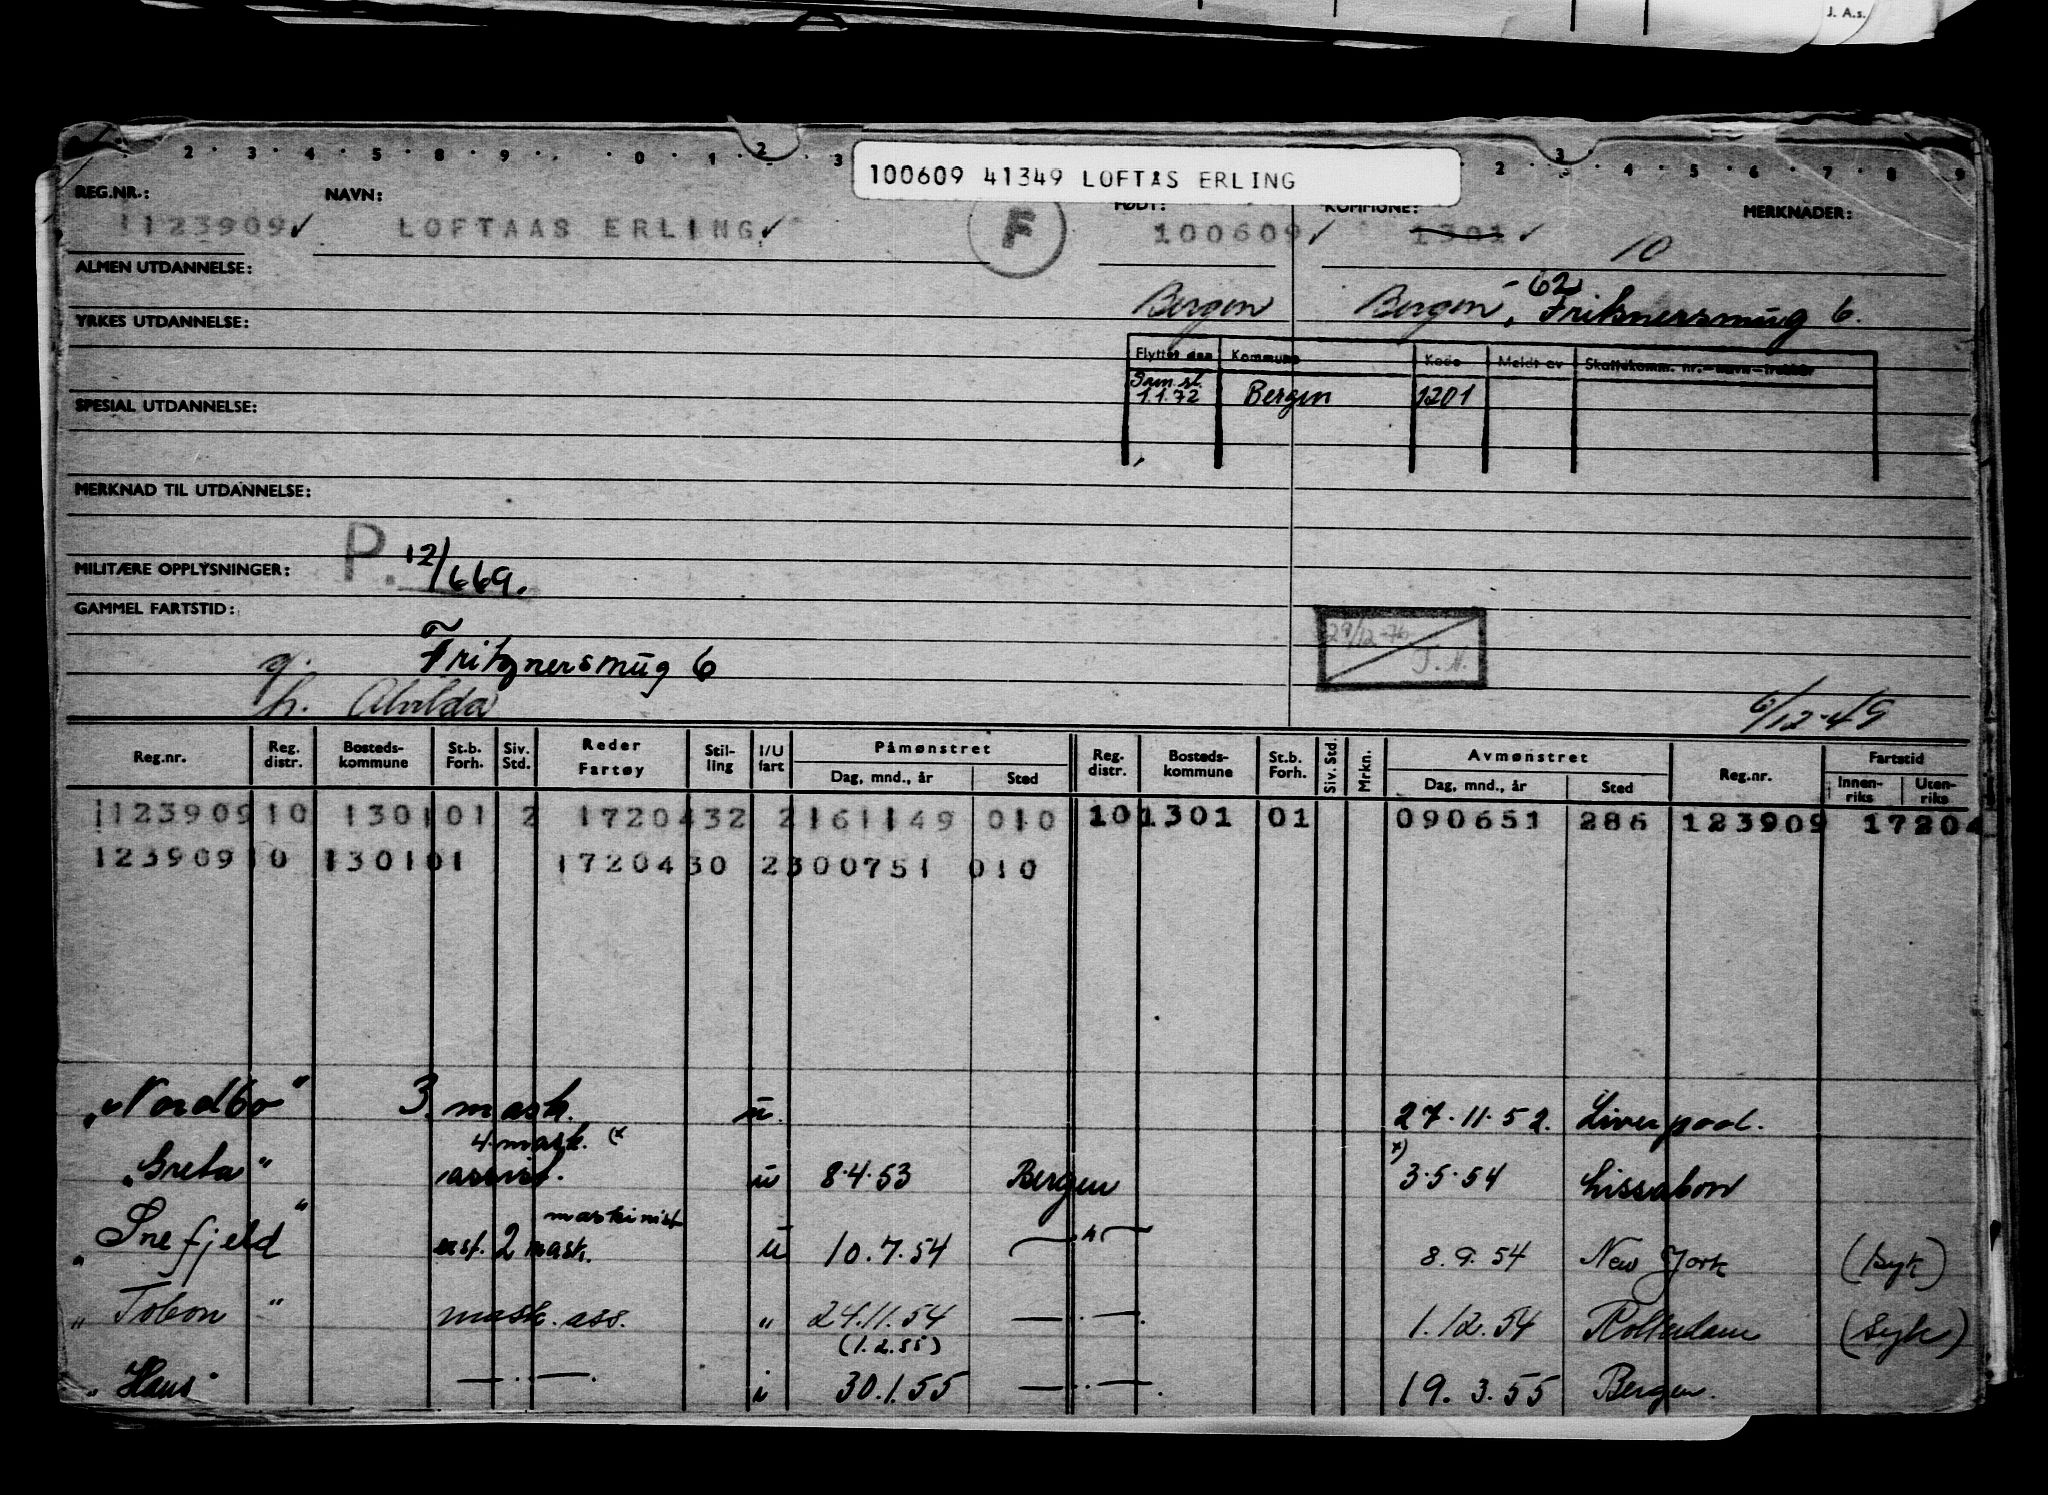 J. A.s.
2 · 3 · 4 · 5 · 8 · 9 · · 0 · 1 · 2 3 2 · 3 4 · 5 · 6 · 7 · 8 9
100609 41349 LOFTÅS ERLING
REG.NR.: NAVN: FØDT: KOMMUNE: MERKNADER:
1123909 ✓ LOFTAAS ERLING ✓ F 100609 ✓ 1301 ✓ 10
ALMEN UTDANNELSE:
Bergen Bergen, -62 Fritznersmug 6.
YRKES UTDANNELSE:
Flyttet den Kommune Kode Meldt av Skattekomm. nr.—navn—trekkår
Sam.sl. 1.1.72 Bergen 1201
SPESIAL UTDANNELSE:
MERKNAD TIL UTDANNELSE:
P. 12/669.
MILITÆRE OPPLYSNINGER:
GAMMEL FARTSTID:
29/12-76 J.H.
g. Fritznersmug 6
h. Alvilda 6/12-49
Reg.nr. Reg. distr. Bosteds-kommune St.b. Forh. Siv. Std. Reder Fartøy Stil-ling I/U fart Påmønstret Dag, mnd., år Sted Reg. distr. Bosteds-kommune St.b. Forh. Siv. Std. Mrkn. Avmønstret Dag, mnd., år Sted Reg.nr. Fartstid Innen-riks Uten-riks
1123909 10 1301 01 2 1720432 2 161149 010 10 1301 01 090651 286 123909 17204
123909 10 1301 01 1720430 2 300751 010
„Nordbo" 3. mask. u. 27.11.52. Liverpool.
4. mask. (x
„Greta" assist. u 8.4.53 Bergen x) 3.5.54 Lissabon
maskinist
„Snefjeld" ast. 2 mask. u 10.7.54 —"— 8.9.54 New York (syk)
„Tobon" mask. ass. " 24.11.54 —.—. 1.12.54 Rotterdam (syk)
(1.2.55)
„Haus" —.—. i 30.1.55 —.—. 19.3.55 Bergen.